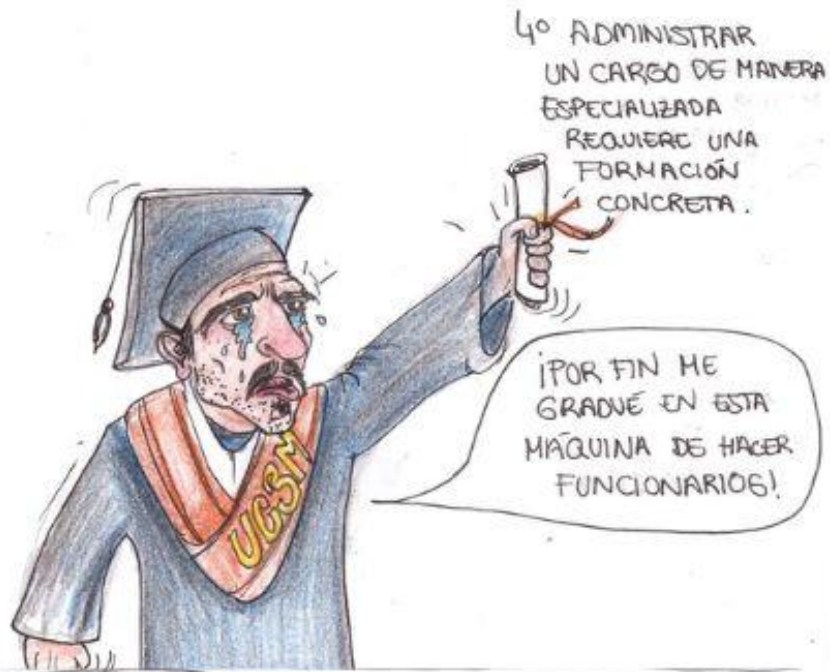 4º ADMINISTRAR
UN CARGO DE MANERA
ESPECIALIZADA
REQUIERE UNA
FORMACIÓN
CONCRETA.
¡POR FIN ME
GRADUÉ EN ESTA
MÁQUINA DE HACER
FUNCIONARIOS!
UC3M